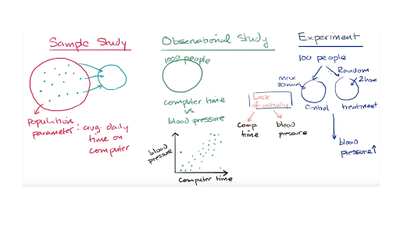 Sample Study
Population
parameter: avg. daily
time on
computer
Observational Study
1000 people
computer time
vs
blood pressure
blood
pressure
computer time
Lack
of activity
comp
time
blood
pressure
Experiment
100 people
Random
max
30 min
2 hours
Control
treatment
blood
pressure ↑